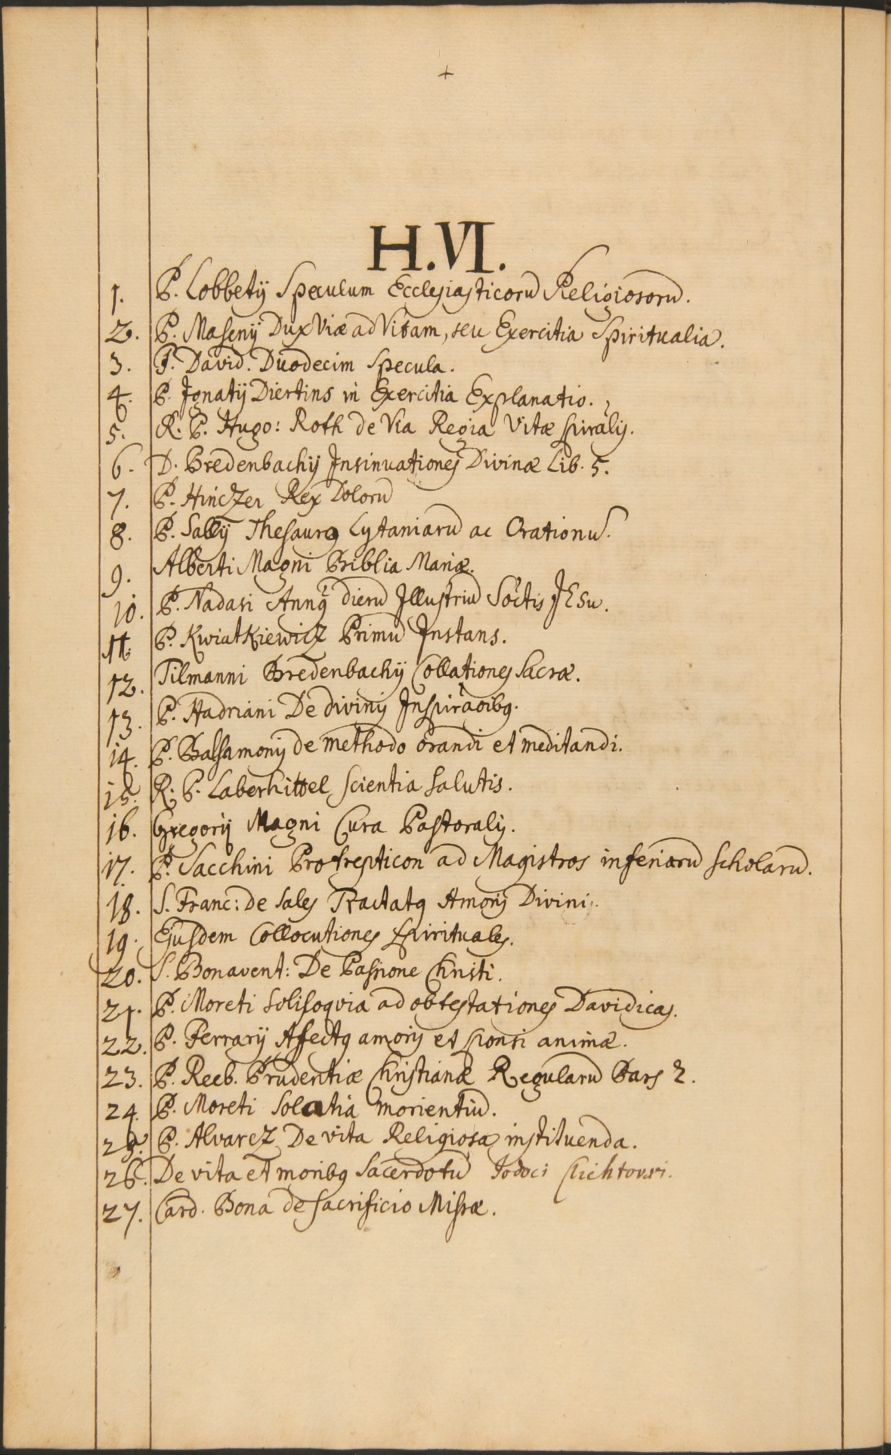 +
H.VI.
1. P. Lobbetÿ Speculum Ecclesiasticorũ Religiosorũ.
2. P. Masenÿ Dux Viæ ad Vitam, seu Exercitia Spiritualia.
3. P. David. Duodecim Specula.
4. P. Jgnatÿ Diertins in Exercitia Explanatio.
5. R. P. Hugo: Roth de Via Regia Vitæ spiralis.
6. D. Bredenbachÿ Jnsinuationes Divinæ Lib. 5.
7. P. Hińczer Rex Dolorũ
8. P. Sallÿ Thesaurꝯ Lytaniarũ ac Orationũ.
9. Alberti Magni Biblia Mariæ.
10. P. Nadasi Annꝯ dierũ Jllustriũ Soctis JESu.
11. P. Kwiatkiewicz Primũ Jnstans.
12. Tilmanni Bredenbachÿ Collationes Sacræ.
13. P. Hadriani De divinis Jnspiraõibꝯ.
14. P. Balsamonÿ de methodo orandi et meditandi.
15. R. P. Laberhittel Scientia Salutis.
16. Gregorÿ Magni Cura Pastoralis.
17. P. Sacchini Protrepticon ad Magistros inferiorũ scholarũ.
18. S. Franc: de Sales Tractatꝯ Amoris Divini.
19. Ejusdem Collocutiones Spirituales.
20. S. Bonavent: De Passione Christi.
21. P. Moreti Soliloqvia ad obtestationes Davidicas.
22. P. Ferrarÿ Affectꝯ amoris et sponsi animæ.
23. P. Reeb. Prudentiæ Christianæ Regularũ Pars 2.
24. P. Moreti Solatia morientiũ.
25. P. Alvarez De vita Religiosa instituenda.
26. De vita et moribꝯ Sacerdotũ Jodoci Clichtovei.
27. Card. Bona de sacrificio Missæ.